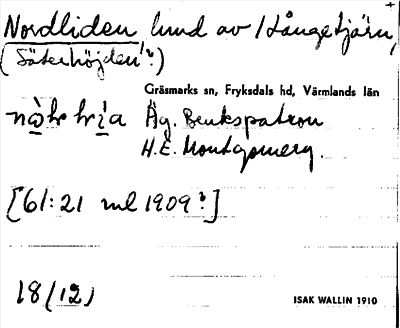 Nordliden lund av Långetjärn,
(Säterhöjden?)
Gräsmarks sn, Fryksdals hd, Värmlands län
Äg. Brukspatron
H.E. Montgomery.
[61:21 ml 1909?]
18 (12)
ISAK WALLIN 1910